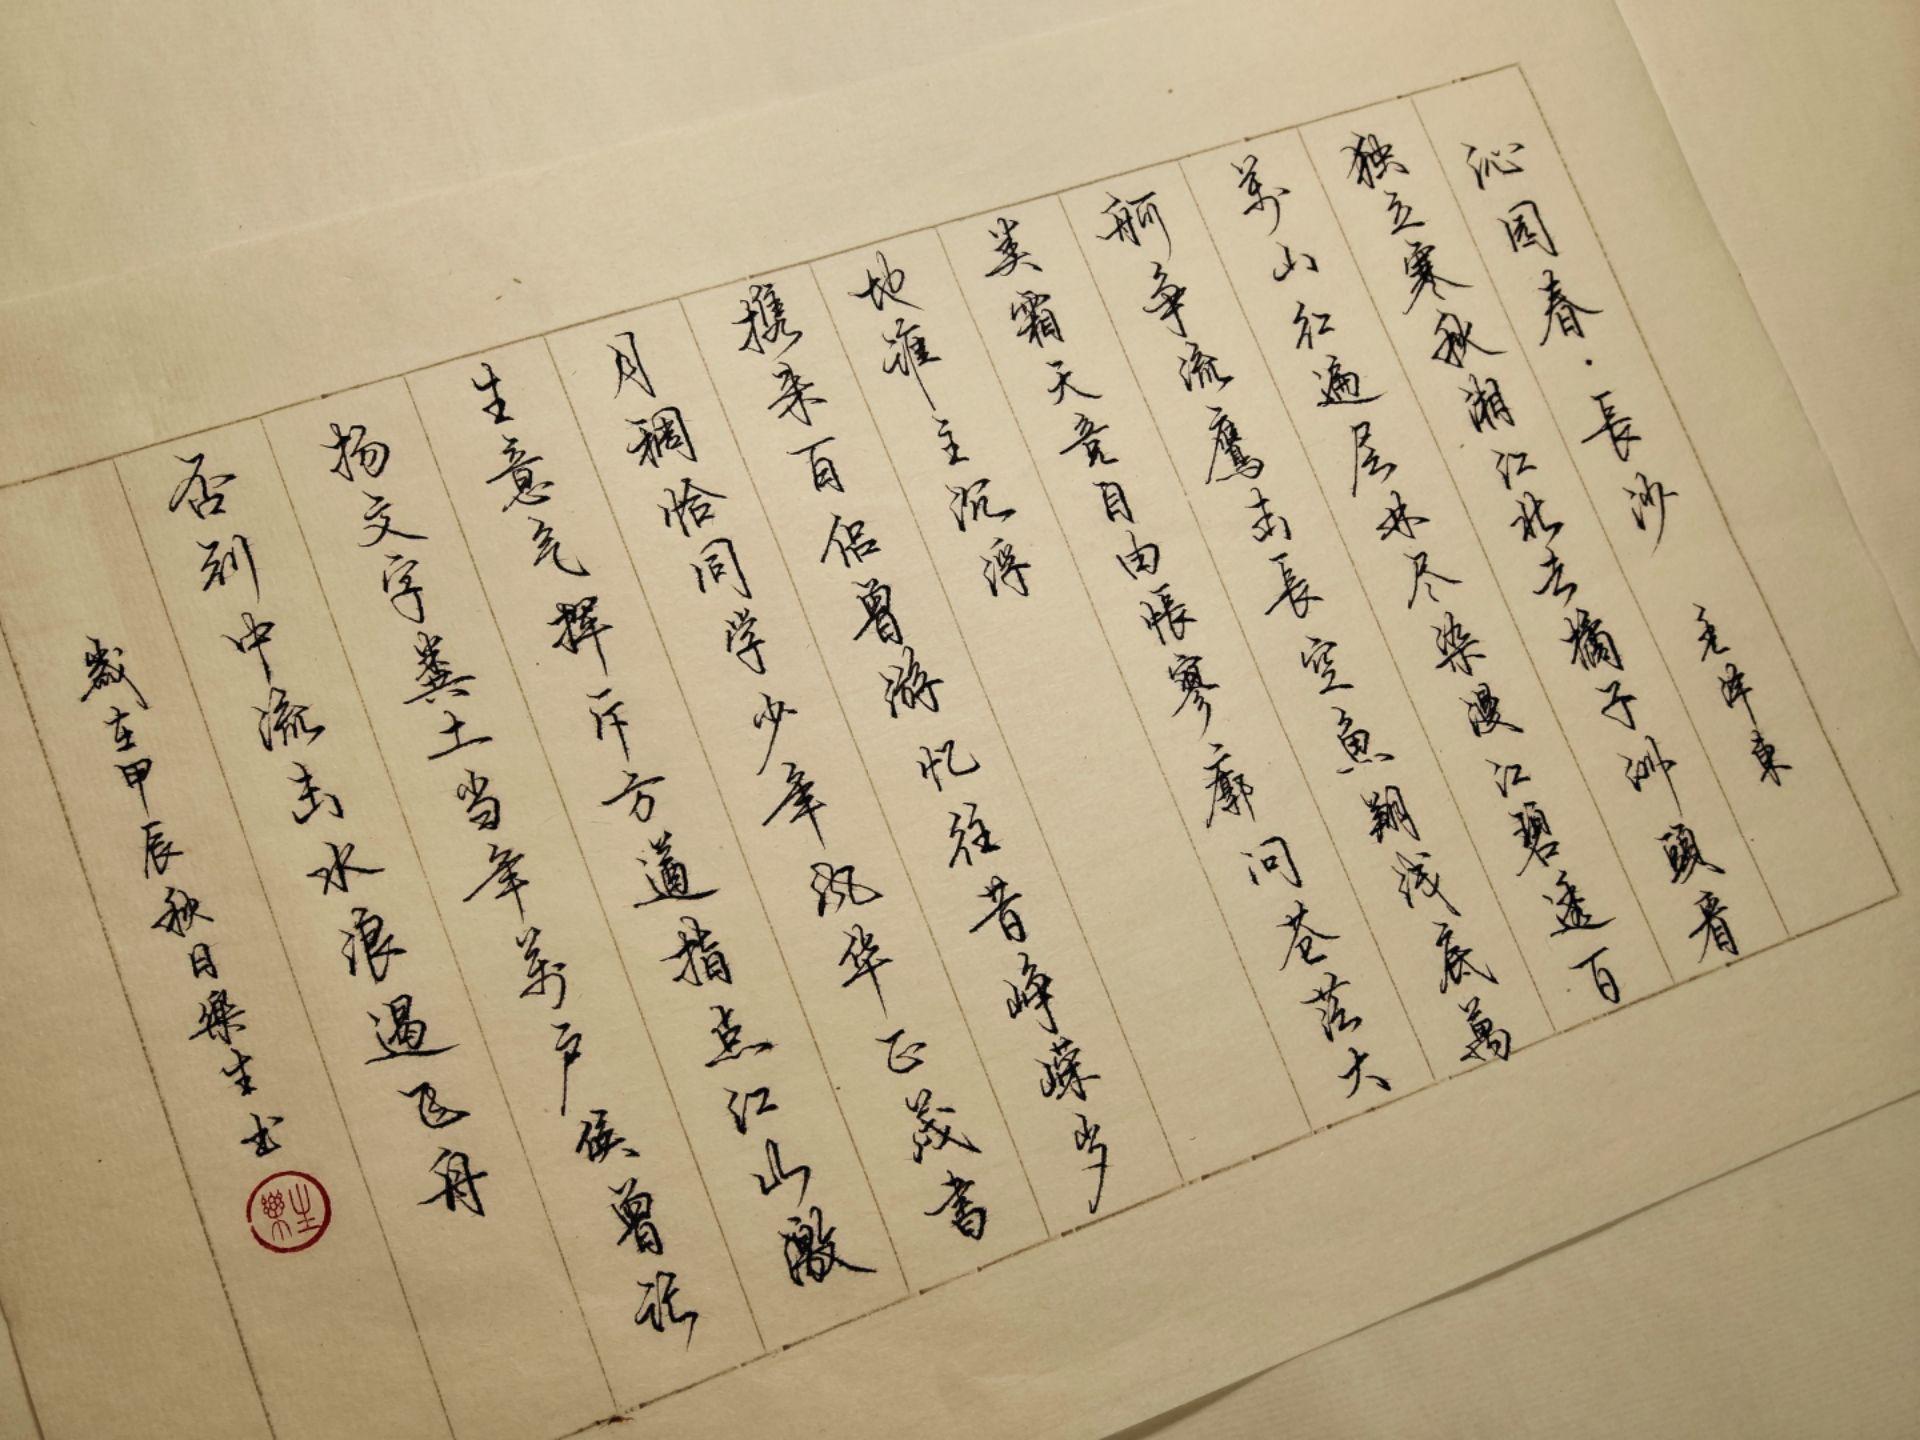 沁园春·長沙 毛泽东
独立寒秋湘江北去橘子洲頭看
萬山红遍层林尽染漫江碧透百
舸争流鹰击長空魚翔浅底萬
类霜天竞自由怅寥廓问苍茫大
地谁主沉浮
携来百侣曾游忆往昔峥嵘岁
月稠恰同学少年风华正茂书
生意气挥斥方遒指点江山激
扬文字粪土当年萬户侯曾记
否到中流击水浪遏飞舟
歲在甲辰秋日樂生书
樂生